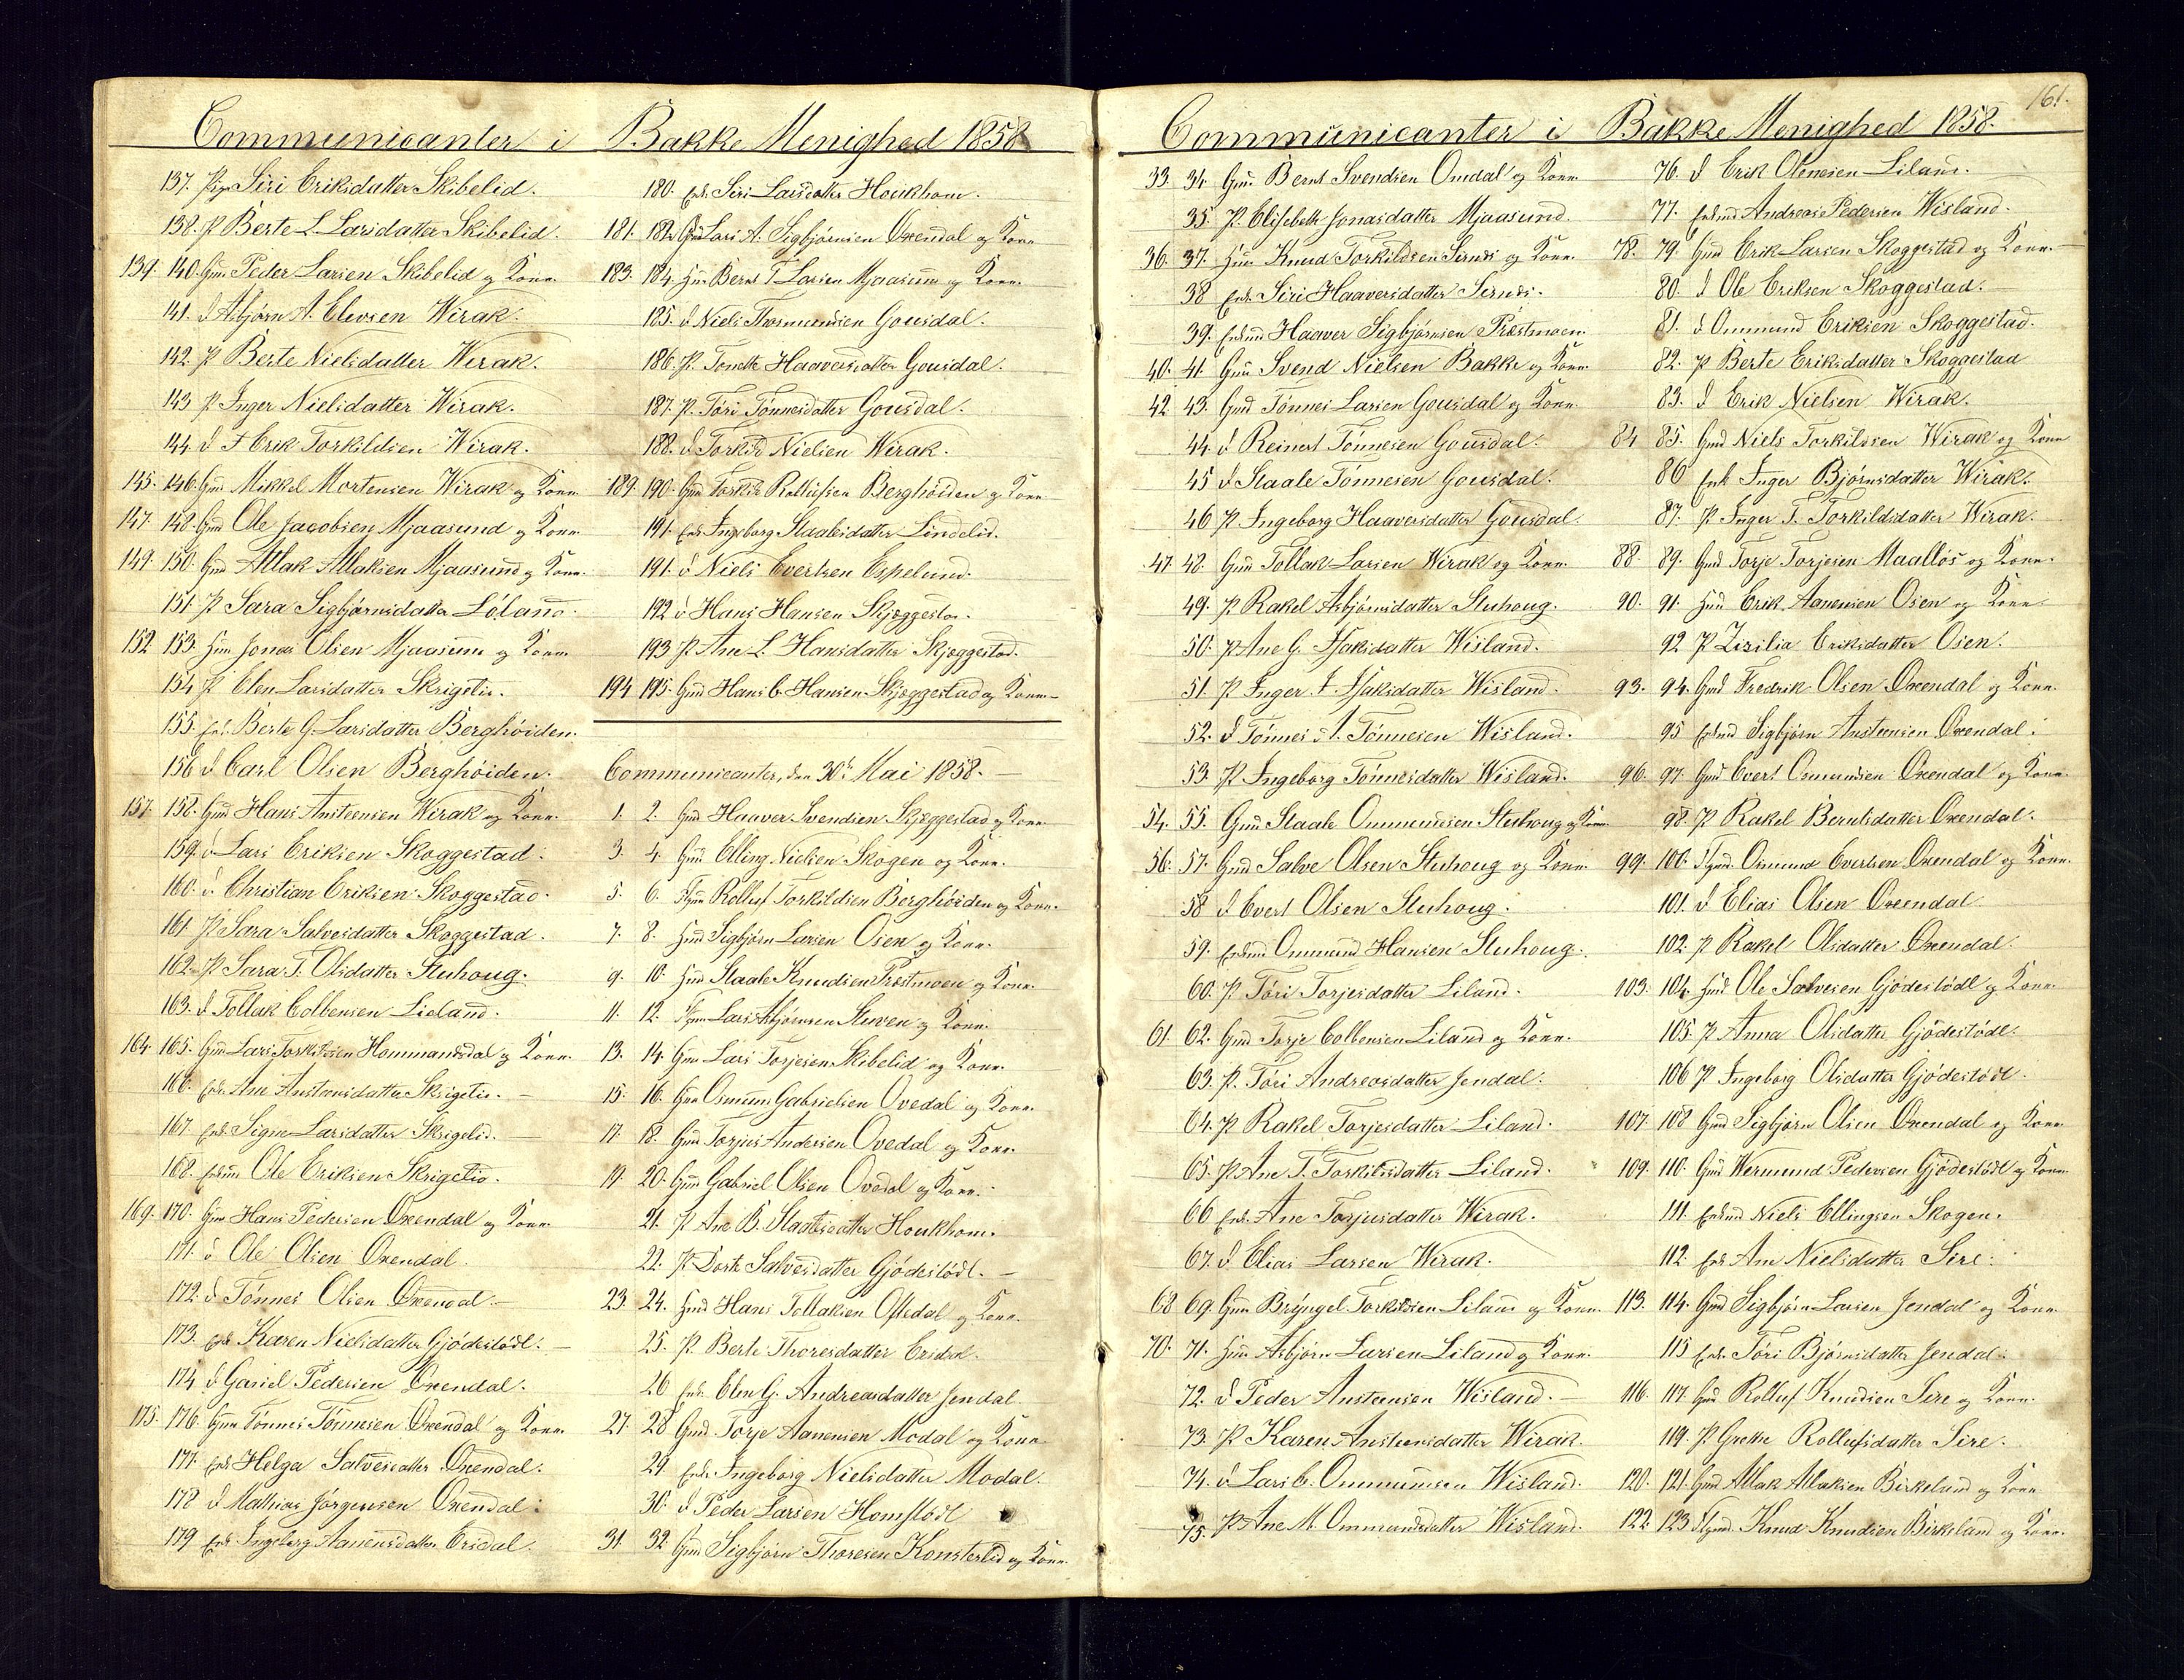 Communicanter i Bakke Menighed 1858
137. Pige Siri Eriksdatter Skibelid.
138. P Berte L. Larsdatter Skibelid.
139. 140. Gmd Peder Larsen Skibelid og Kone.
141. d Asbjørn A. Elevsen Wirak.
142. P Berte Nielsdatter Wirak.
143 P Inger Nielsdatter Wirak.
144. d T Erik Torkildsen Wirak.
145. 146. Gmd Mikkel Mortensen Wirak og Kone.
147. 148. Gmd Ole Jacobsen Mjaasund og Kone.
149. 150. Gmd Atlak Atlaksen Mjaasund og Kone.
151. P Sara Sigbjørnsdatter Løland.
152 153. Hmd Jonas Olsen Mjaasund og Kone
154 P Elen Larsdatter Skrigelid.
155. Enk. Berte G. Larsdatter Berghøiden.
156 d Carl Olsen Berghøiden.
157. 158. Gmd Hans Ansteensen Wirak og Kone.
159. d Lars Eriksen Skoggestad.
160. d. Christian Eriksen Skoggestad.
161. P Sara Salvesdatter Skoggestad.
162. P Sara T. Olsdatter Stuhoug.
163. d Tollak Colbensen Lieland.
164. 165. Gmd Lars Torkildsen Hommandsdal og Kone.
166. Enk. Ane Anstensdatter Skrigelid.
167. Enk. Signe Larsdatter Skrigelid.
168. Enkemd Ole Eriksen Skrigelid.
169. 170. Gmd Hans Pedersen Oxendal og Kone
171. d Ole Olsen Oxendal.
172. d Tönnes Olsen Oxendal.
173. Enk Karen Nielsdatter Gjödestödl.
174 d Gariel Pedersen Oxendal.
175. 176. Gmd Tönnes Tönnesen Oxendal og Kone
177. Enk Helga Salvesdatter Oxendal.
178 d Mathias Jörgensen Oxendal.
179 Enk Ingeborg Aanensdatter Eridal.
180. Enk. Siri Larsdatter Houkhom.
181. 182. Gmd Lars A. Sigbjörnsen Oxendal og Kone
183. 184. Hmd Bernt T Larsen Mjaasund og Kone.
185. d Niels Thormundsen Gousdal.
186. P. Tonette Haaversdatter Gousdal.
187. P. Töri Tönnesdatter Gousdal.
188. d Torkild Nielsen Wirak.
189. 190. Gmd Torkild Rollufsen Berghöiden og Kone
191. Enk Ingeborg Staalesdatter Lindelid.
191. d Niels Evertsen Espelund.
192 d Hans Hansen Skjæggestad.
193 P Ane L. Hansdatter Skjæggestad.
194 195. Gmd Hans C. Hansen Skjæggestad og Kone
Communicanter, den 30te Mai 1858.
1. 2. Gmd Haaver Svendsen Skjæggestad og Kone
3. 4. Gmd Elling Nielsen Skogen og Kone.
5. 6. Rolluf Torkildsen Berghöiden og Kone.
7. 8. Hmd Sigbjörn Larsen Osen og Kone.
9. 10. Hmd Staale Knudsen Præstmoen og Kone.
11. 12. Lars Asbjörnsen Stuven og Kone.
13. 14. Gmd Lars Torjesen Skibelid og Kone.
15. 16. Gmd Osmund Gabrielsen Ovedal og Kone.
17. 18. Gmd Torjus Andersen Ovedal og Kone.
19. 20. Gmd Gabriel Olsen Ovedal og Kone.
21. P Ane B. Staalesdatter Houkhom.
22. P Dorte Salvesdatter Gjödestödl.
23. 24. Hmd Hans Tollaksen Oftedal og Kone.
25. P. Berte Thoresdatter Eridal.
26 Enk. Elen G. Andreasdatter Jendal
27. 28 Gmd Torje Aanensen Modal og Kone
29. Enk. Ingeborg Nielsdatter Modal.
30. d Peder Larsen Homstödl
31. 32 Gmd Sigbjörn Thoresen Konsterlid og Kone.
161.
Communicanter i Bakke Menighed 1858.
33. 34. Gmd. Bernt Svendsen Omdal og Kone.
35. P. Elisebeth Jonasdatter Mjaasund.
36. 37. Hmd Knud Torkildsen Sirnes og Kone.
38 Enk. Siri Haaversdatter Sirnes.
39. Enkemd Haaver Sigbjörnsen Præstmoen
40. 41 Gmd Svend Nielsen Bakke og Kone.
42 43. Gmd Tönnes Larsen Gousdal og Kone.
44. d Reinert Tönnesen Gousdal.
45 d Staale Tönnesen Gousdal.
46 P Ingeborg Haaversdatter Gousdal.
47. 48. Gmd Tollak Larsen Wirak og Kone.
49. P Rakel Asbjörnsdatter Stuhoug.
50. P Ane G. Isaksdatter Wisland.
51. P Inger T. Isaksdatter Wisland.
52. d Tönnes A. Tönnesen Wisland.
53. P Ingeborg Tönnesdatter Wisland.
54. 55. Gmd Staale Ommundsen Stuhoug og Kone
56. 57. Gmd Salve Olsen Stuhoug og Kone.
58 d Evert Olsen Stuhoug.
59. Enkemd Ommund Hansen Stuhoug.
60. P Töri Torjesdatter Liland.
61. 62. Gmd Torje Colbensen Liland og Kone.
63. P. Töri Andreasdatter Jendal.
64. P Rakel Torjesdatter Liland.
65. P Ane T. Torkildsdatter Liland.
66 Enk. Ane Torjusdatter Wirak.
67. d Elias Larsen Wirak.
68 69. Gmd Bryngel Torkildsen Liland og Kone.
70. 71. Hmd Asbjörn Larsen Liland og Kone.
72. d Peder Anstensen Wisland.
73. P Karen Anstensdatter Wirak
74. d Lars C. Ommundsen Wisland.
75. P Ane M. Ommundsdatter Wisland.
76. d Erik Olenesen Liland.
77. Enkemd Andreas Pedersen Wisland.
78. 79. Gmd Erik Larsen Skoggestad og Kone.
80. d Ole Eriksen Skoggestad.
81. d Ommund Eriksen Skoggestad.
82. P Berte Eriksdatter Skoggestad
83. d Erik Nielsen Wirak.
84 85. Gmd Niels Torkildsen Wirak og Kone
86 Enk Inger Bjørnsdatter Wirak.
87. P. Inger T. Torkildsdatter Wirak.
88. 89. Gmd Torje Torjesen Maalløs og Kone.
90. 91. Hmd Erik Aanensen Osen og Kone
92 P Zizilia Eriksdatter Osen.
93. 94. Gmd Fredrik Olsen Oxendal og Kone.
95 Enkemd Sigbjørn Anstensen Oxendal.
96. 97. Gmd Evert Osmundsen Oxendal og Kone.
98. P Rakel Berntsdatter Oxendal.
99. 100. Osmund Evertsen Oxendal og Kone.
101. d Elias Olsen Oxendal
102. P Rakel Olsdatter Oxendal.
103. 104. Hmd Ole Salvesen Gjödestödl og Kone.
105. P Anna Olsdatter Gjödestödl.
106 P Ingeborg Olsdatter Gjödestödl.
107. 108 Gmd Sigbjörn Olsen Oxendal og Kone
109. 110. Gmd Wermund Pedersen Gjödestödl og Kone
111. Enkemd Niels Ellingsen Skogen.
112. Enk Ane Nielsdatter Sire.
113. 114. Gmd Sigbjörn Larsen Jendal og Kone
115 Enk. Töri Bjørnsdatter Jendal.
116. 117. Gmd Rolluf Knudsen Sire og Kone.
119. P. Grethe Rollufsdatter Sire.
120. 121. Gmd Atlak Atlaksen Birkeland og Kone
122. 123 Knud Knudsen Birkeland og Kone.